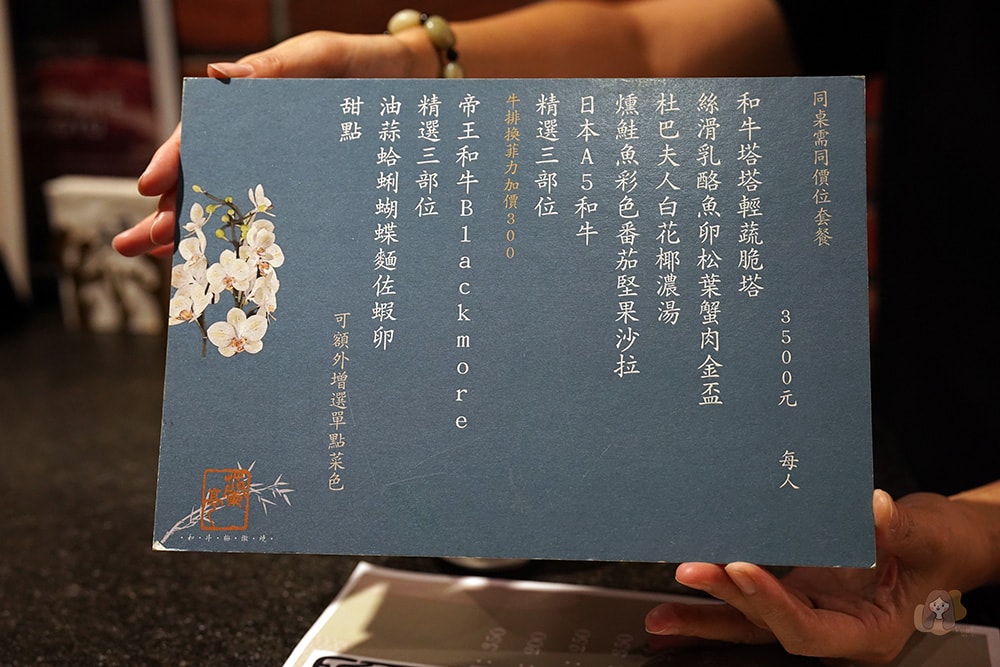 同桌需同價位套餐
3500元 每人
和牛塔塔輕蔬脆塔
絲滑乳酪魚卵松葉蟹肉金盃
杜巴夫人白花椰濃湯
燻鮭魚彩色番茄堅果沙拉
日本A5和牛
精選三部位
牛排換菲力加價300
帝王和牛Blackmore
精選三部位
油蒜蛤蜊蝴蝶麵佐蝦卵
甜點
可額外增選單點菜色